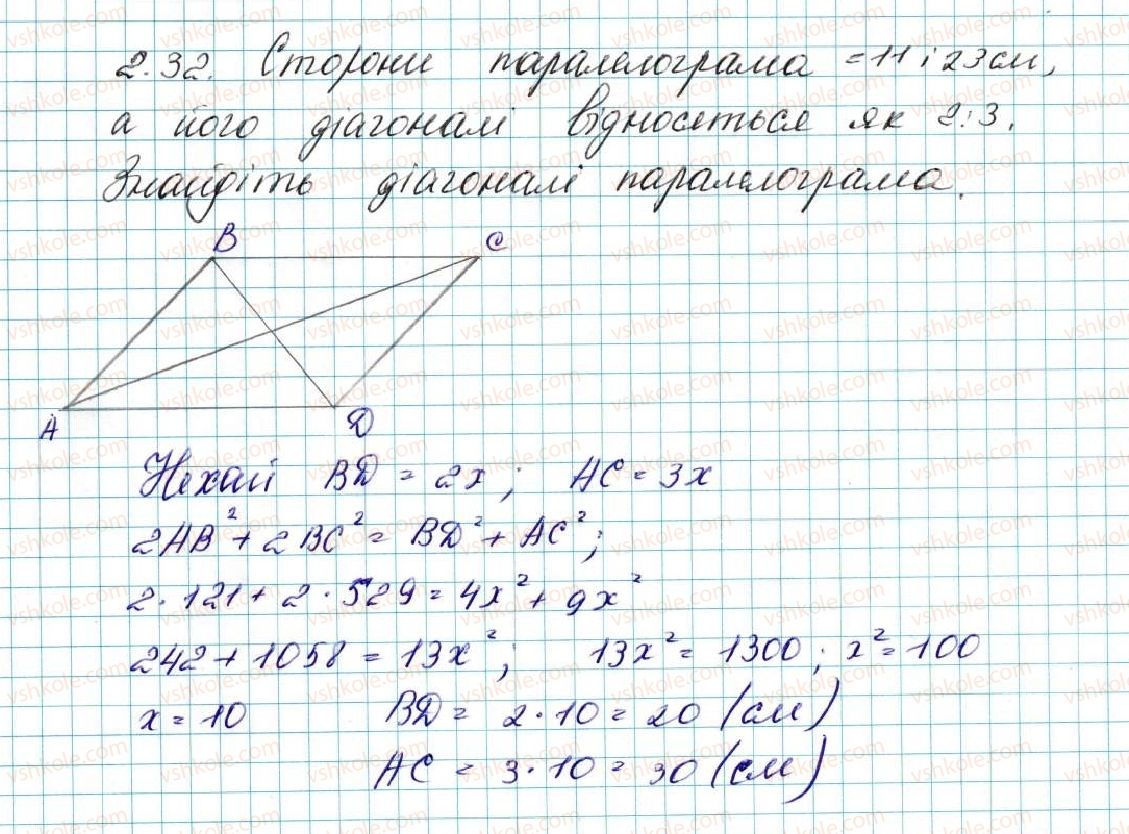 2.32. Сторони паралелограма = 11 і 23 см,
а його діагоналі відносяться як 2:3.
Знайдіть діагоналі паралелограма.
B C
A D
Нехай BD = 2x; AC = 3x
2AB² + 2BC² = BD² + AC²;
2·121 + 2·529 = 4x² + 9x²
242 + 1058 = 13x²; 13x² = 1300; x² = 100
x = 10 BD = 2·10 = 20 (см)
AC = 3·10 = 30 (см)